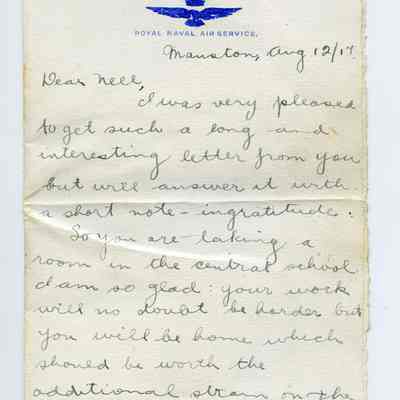 ROYAL NAVAL AIR SERVICE.
Manston, Aug 12/17.
Dear Nell,
I was very pleased
to get such a long and
interesting letter from you
but will answer it with
a short note - ingratitude.
So you are taking a
room in the central school
I am so glad: your work
will no doubt be harder but
you will be home which
should be worth the
additional strain on the